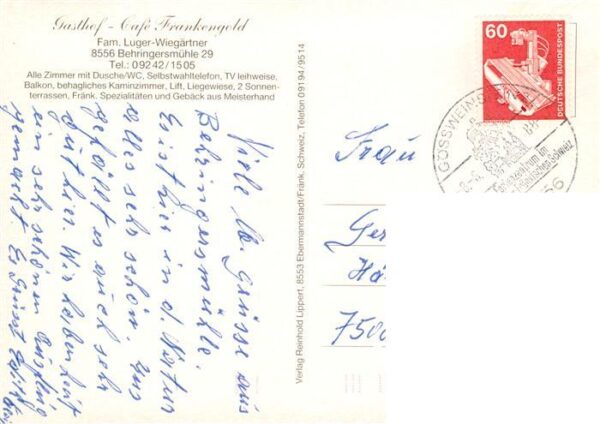 Gasthof - Café Frankengold
Fam. Luger-Wiegärtner
8556 Behringersmühle 29
Tel.: 09242/1505
Alle Zimmer mit Dusche/WC, Selbstwahltelefon, TV leihweise,
Balkon, behagliches Kaminzimmer, Lift, Liegewiese, 2 Sonnen-
terrassen, Fränk. Spezialitäten und Gebäck aus Meisterhand
Viele lb. Grüsse aus
Behringersmühle.
Es ist hier in d. Natur
alles sehr schön. Uns
gefällt es auch sehr
gut hier. Wir haben heut
ein sehr schönen Ausflug
gemacht. Es
Verlag Reinhold Lippert, 8553 Ebermannstadt/Fränk. Schweiz, Telefon 09194/9514
60
DEUTSCHE BUNDESPOST
GÖSSWEINST
Ferienzentrum im
Fränkischen Schweiz
Frau
Ger
Hä
7500